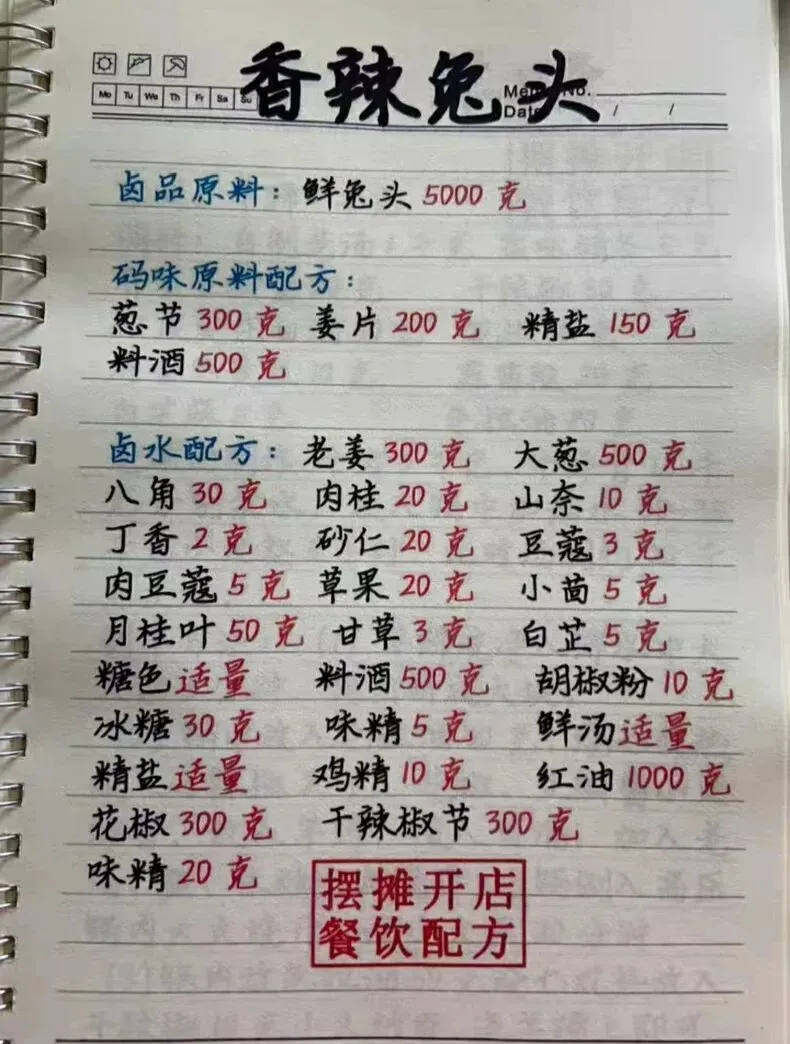 香辣兔头
Memo No.
Mo Tu We Th Fr Sa Su
Date / /
卤品原料：鲜兔头 5000 克
码味原料配方：
葱节 300 克 姜片 200 克 精盐 150 克
料酒 500 克
卤水配方：老姜 300 克 大葱 500 克
八角 30 克 肉桂 20 克 山奈 10 克
丁香 2 克 砂仁 20 克 豆蔻 3 克
肉豆蔻 5 克 草果 20 克 小茴 5 克
月桂叶 50 克 甘草 3 克 白芷 5 克
糖色适量 料酒 500 克 胡椒粉 10 克
冰糖 30 克 味精 5 克 鲜汤适量
精盐适量 鸡精 10 克 红油 1000 克
花椒 300 克 干辣椒节 300 克
味精 20 克
摆摊开店
餐饮配方